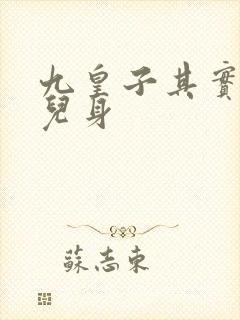 九皇子其實
兒身
蘇志東